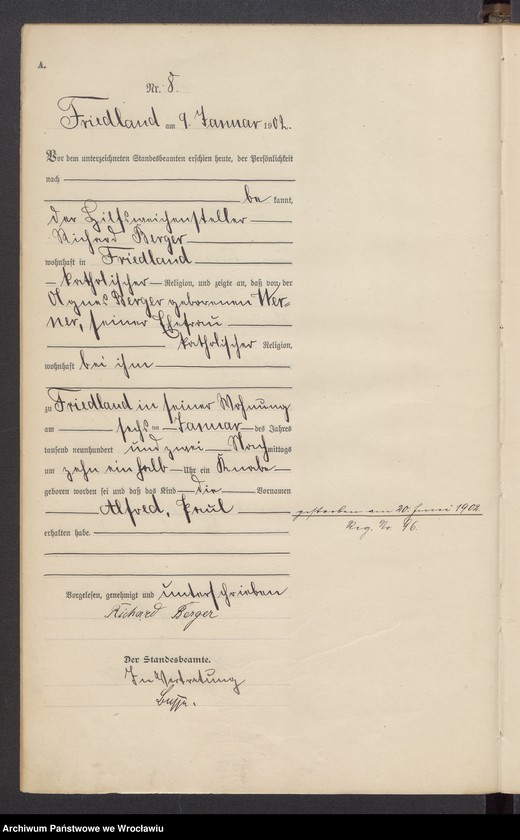 A.
Nr. 8.
Friedland am 9. Januar 1902.
Vor dem unterzeichneten Standesbeamten erschien heute, der Persönlichkeit
nach
be kannt,
der Hilfsweichensteller
Richard Berger
wohnhaft in Friedland
katholischer Religion, und zeigte an, daß von der
Agnes Berger geborenen Wer-
ner, seiner Ehefrau
katholischer Religion,
wohnhaft bei ihm
zu Friedland in seiner Wohnung
am sechs ten Januar des Jahres
tausend neunhundert und zwei Nachmittags
um zehn einhalb Uhr ein Knabe
geboren worden sei und daß das Kind die Vornamen
Alfred, Paul
gestorben am 20. Juni 1902.
Reg. Nr 46.
erhalten habe.
Vorgelesen, genehmigt und unterschrieben
Richard Berger
Der Standesbeamte.
In Vertretung
Archiwum Państwowe we Wrocławiu